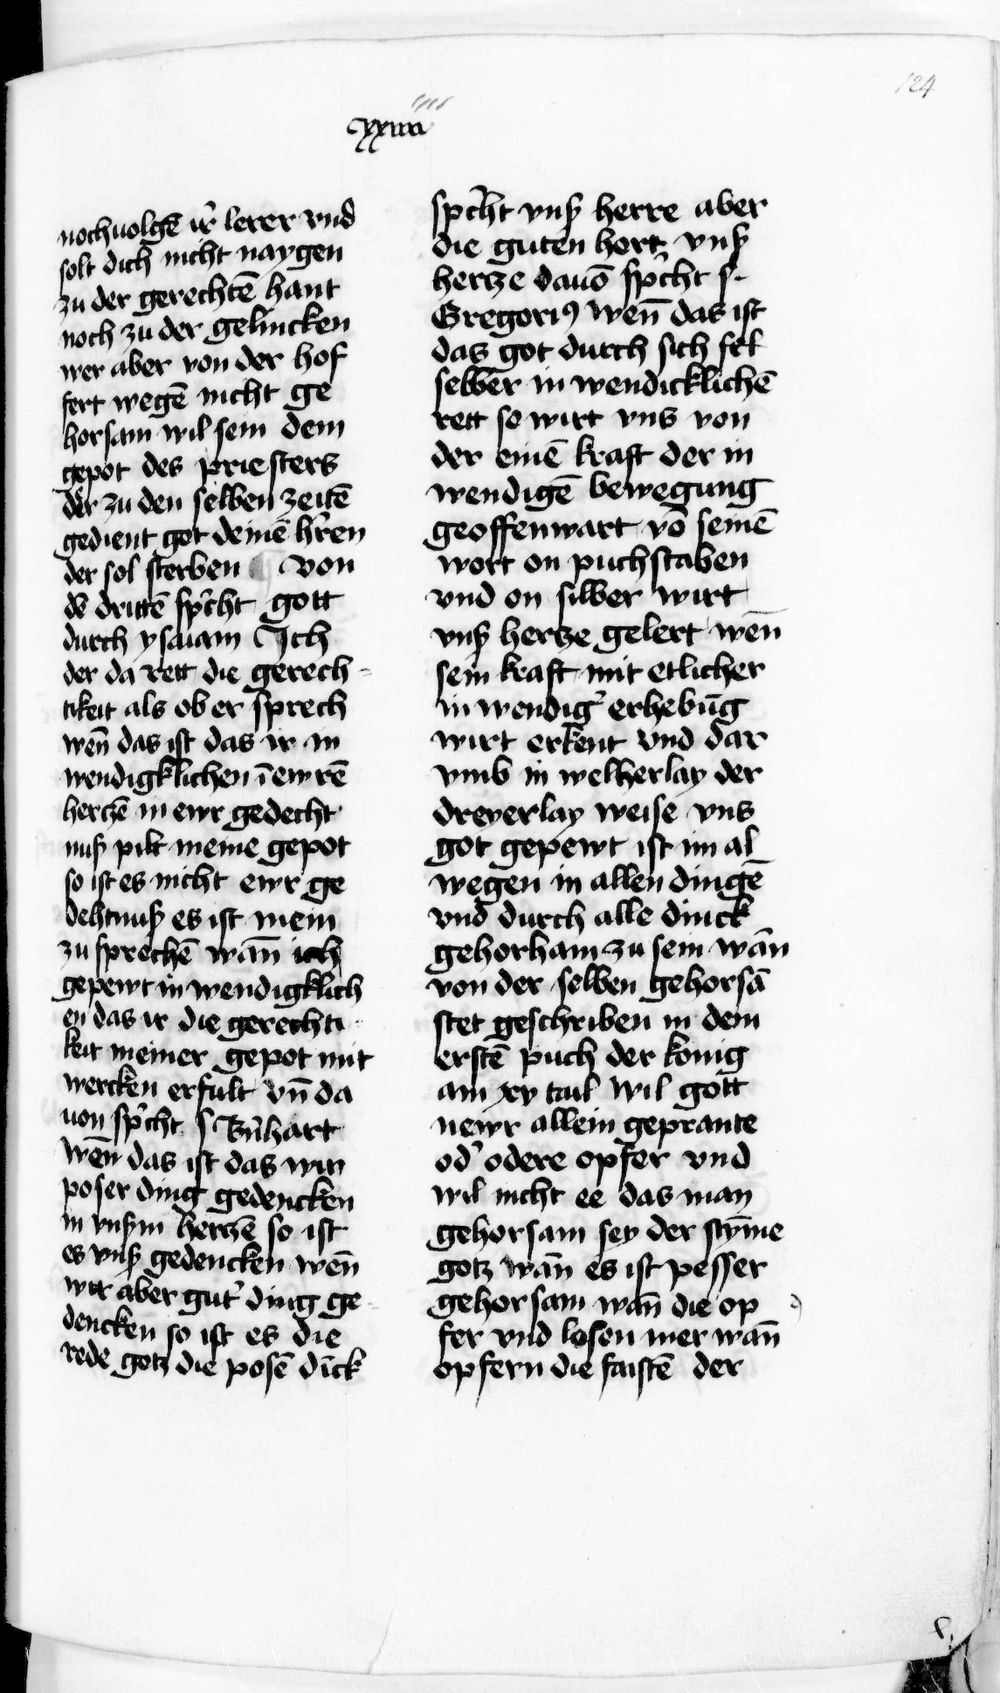 124
xxiiii
nochuolgē ir̉ lerer vnd
solt dich nicht naygen
zu der gerechtē hant
noch zu der gelincken
wer aber von der hof
fert wegē nicht ge
horsam wil sein dem
gepot des priesters
der zu den selben zeitē
gedient got deinē hr̄en
der sol sterben Von
dē drittē sp̄cht gott
durch ysaiam Ich
der da rett die gerech-
tikeit als ob er sprech
wen̄ das ist das ir in
wendigklichen ī ewrē
hertzē in ewr gedecht
nuß pilt meine gepot
so ist es nicht ewr ge
dehtnuß es ist mein
zu sprechē wan̄ ich
gepewt in wendigklich
en das ir die gerechti-
keit meiner gepot mit
wercken erfult vn̄ da
uon sp̄cht s Bn̄hart
wen̄ das ist das wir
poser ding gedencken
in vnsßm hertzē so ist
es vnß gedencken wen̄
wir aber gut̉ ding ge-
dencken so ist es die
rede gotz die posē dīck
sp̄cht vnß herre aber
die guten hort vnß
hertze dauō sp̄cht s.
Gregoriꝰ wen̄ das ist
das got durch sich sel
selber in wendicklichē
rett so wirt vns von
der einē kraft der in
wendigē bewegung
geoffenwart vō seinē
wort on puchstaben
vnd on silber wirt
vnß hertze gelert wēn
sein kraft mit etlicher
in wendig̉ erhebūg
wirt erkent vnd dar
vmb in welherlay der
dreyerlay weise vns
got gepewt ist im al
wegen in allen dingē
vnd durch alle dinck
gehorham zu sein wān
von der selben gehorsā
stet geschriben in dem
erstē puch der konig
am xv tail wil gott
newr allein geprante
od̉ odere opfer vnd
wil nicht ee das man
gehorsam sey der stȳme
gotz wan̄ es ist pesser
gehorsam wan̄ die op
fer vnd losen mer wan̄
opfern die faistē der